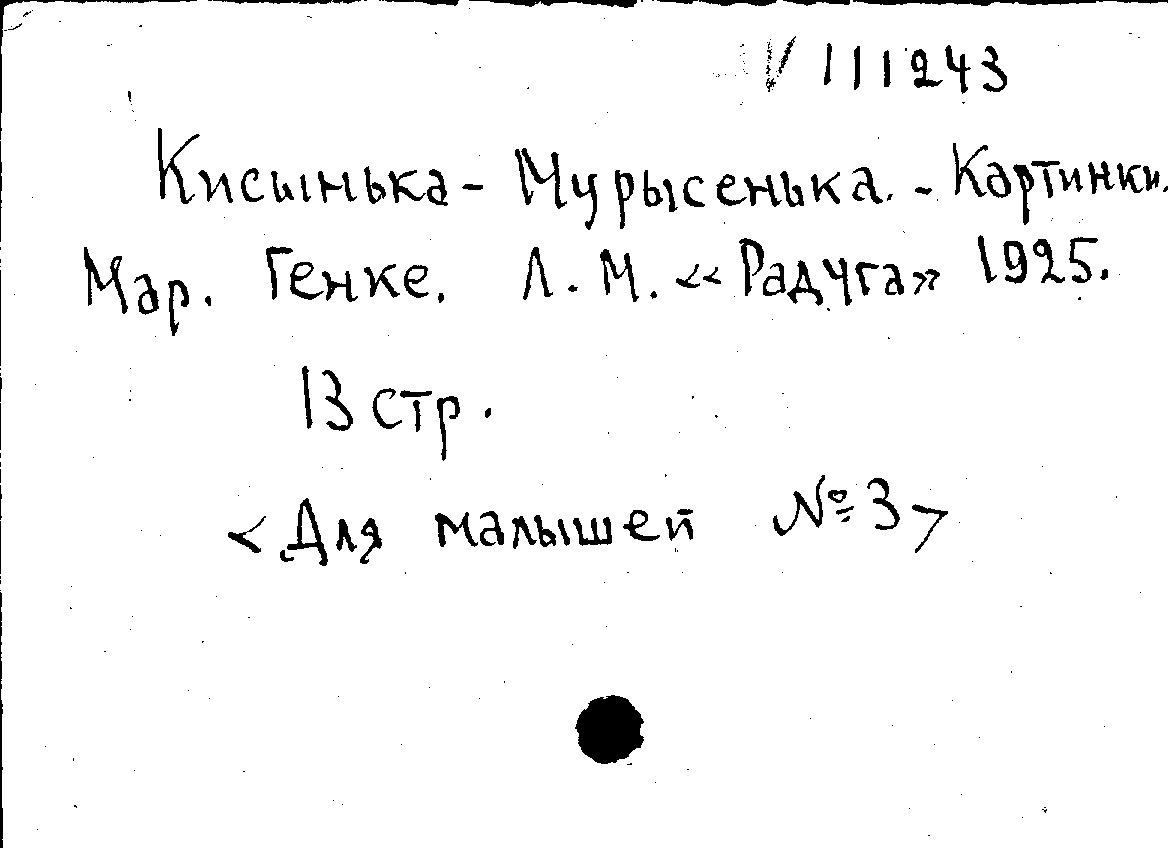 V 111243
Кисынька - Мурысенька. - Картинки.
Мар. Генке. Л. М. «Радуга» 1925.
13 стр.
<Для малышей № 3>